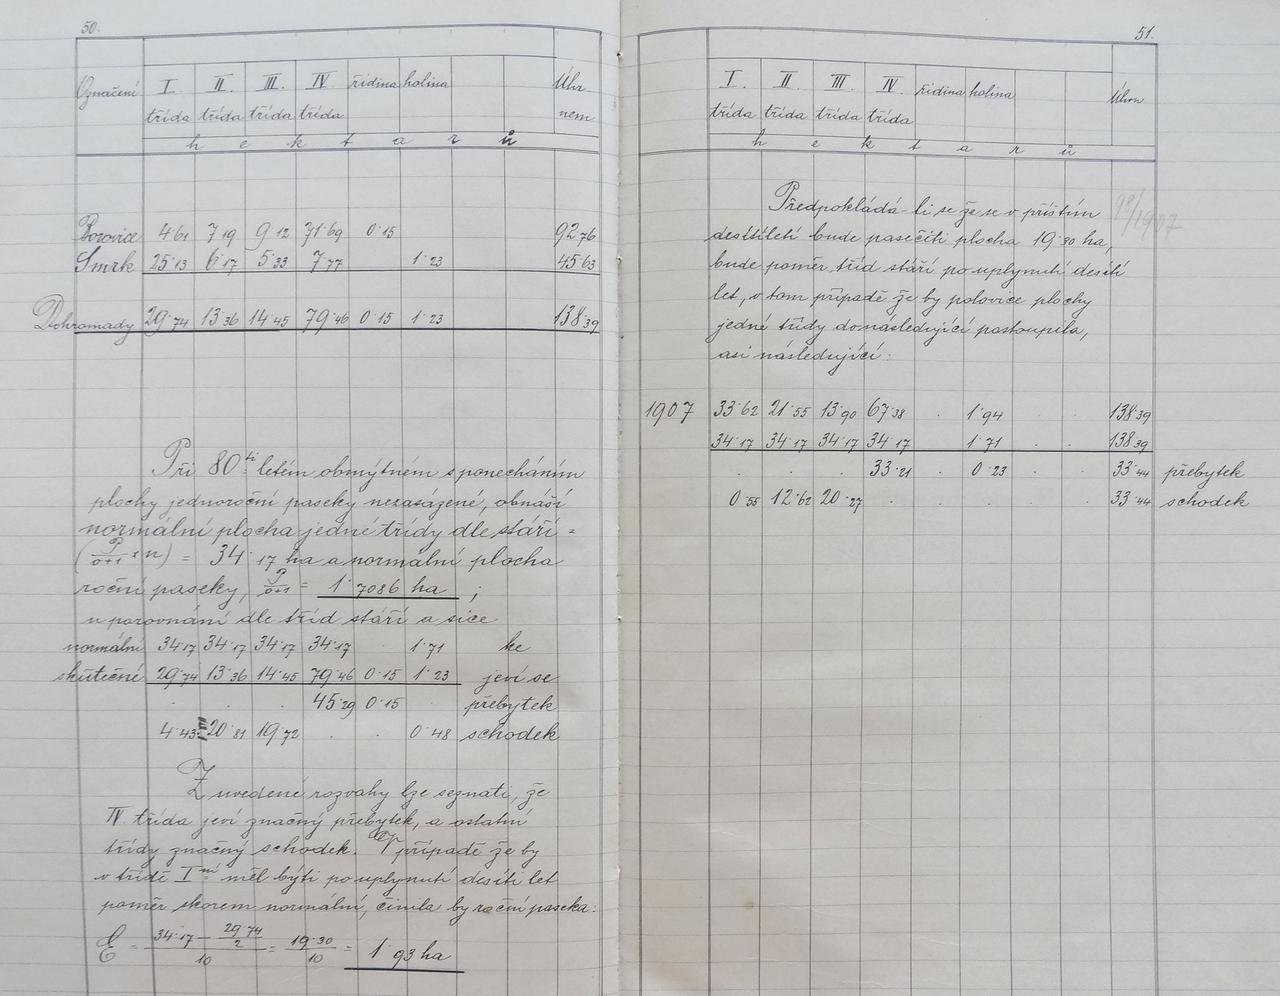 50.
Označení I. II. III. IV ředina holina Úhr-
třída třída třída třída nem
h e k t a r ů
Borovice 4·61 7·19 9·12 71·69 0·15 92·76
Smrk 25·13 6·17 5·33 7·77 1·23 45·63
Dohromady 29·74 13·36 14·45 79·46 0·15 1·23 138·39
Při 80ti letém obmýtnem s ponecháním
plochy jednoroční paseky nezasázené, obnáší
normální plocha jedné třídy dle stáří =
(P/o+1 × n) = 34·17 ha a normální plocha
roční paseky, P/o+1 = 1·7086 ha ;
u porovnání dle tříd stáří a sice
normální 34·17 34·17 34·17 34·17 · 1·71 ke
skutečné 29·74 13·36 14·45 79·46 0·15 1·23 jeví se
· · · 45·29 0·15 · přebytek
4·43 20·81 19·72 · · 0·48 schodek
Z uvedené rozvahy lze seznati, že
IV třída jeví značný přebytek, a ostatní
třídy značný schodek. V případě že by
v třídě I.ní měl býti po uplynutí desíti let
poměr skorem normální, činila by roční paseka:
E = 34·17 − 29·74/2 / 10 = 19·30/10 = 1·93 ha
51.
I. II. III IV ředina holina Úhrn
třída třída třída třída
h e k t a r ů
98/1907
Předpokládá-li se že se v příštím
desítiletí bude pasečiti plocha 19·30 ha,
bude poměr tříd stáří po uplynutí desíti
let, v tom případě že by polovice plochy
jedné třídy do následující postoupila,
asi následující:
1907 33·62 21·55 13·90 67·38 · 1·94 · · 138·39
34·17 34·17 34·17 34·17 1·71 · · 138·39
· · · 33·21 · 0·23 · · 33·44 přebytek
0·55 12·62 20·27 · · · · · 33·44 schodek